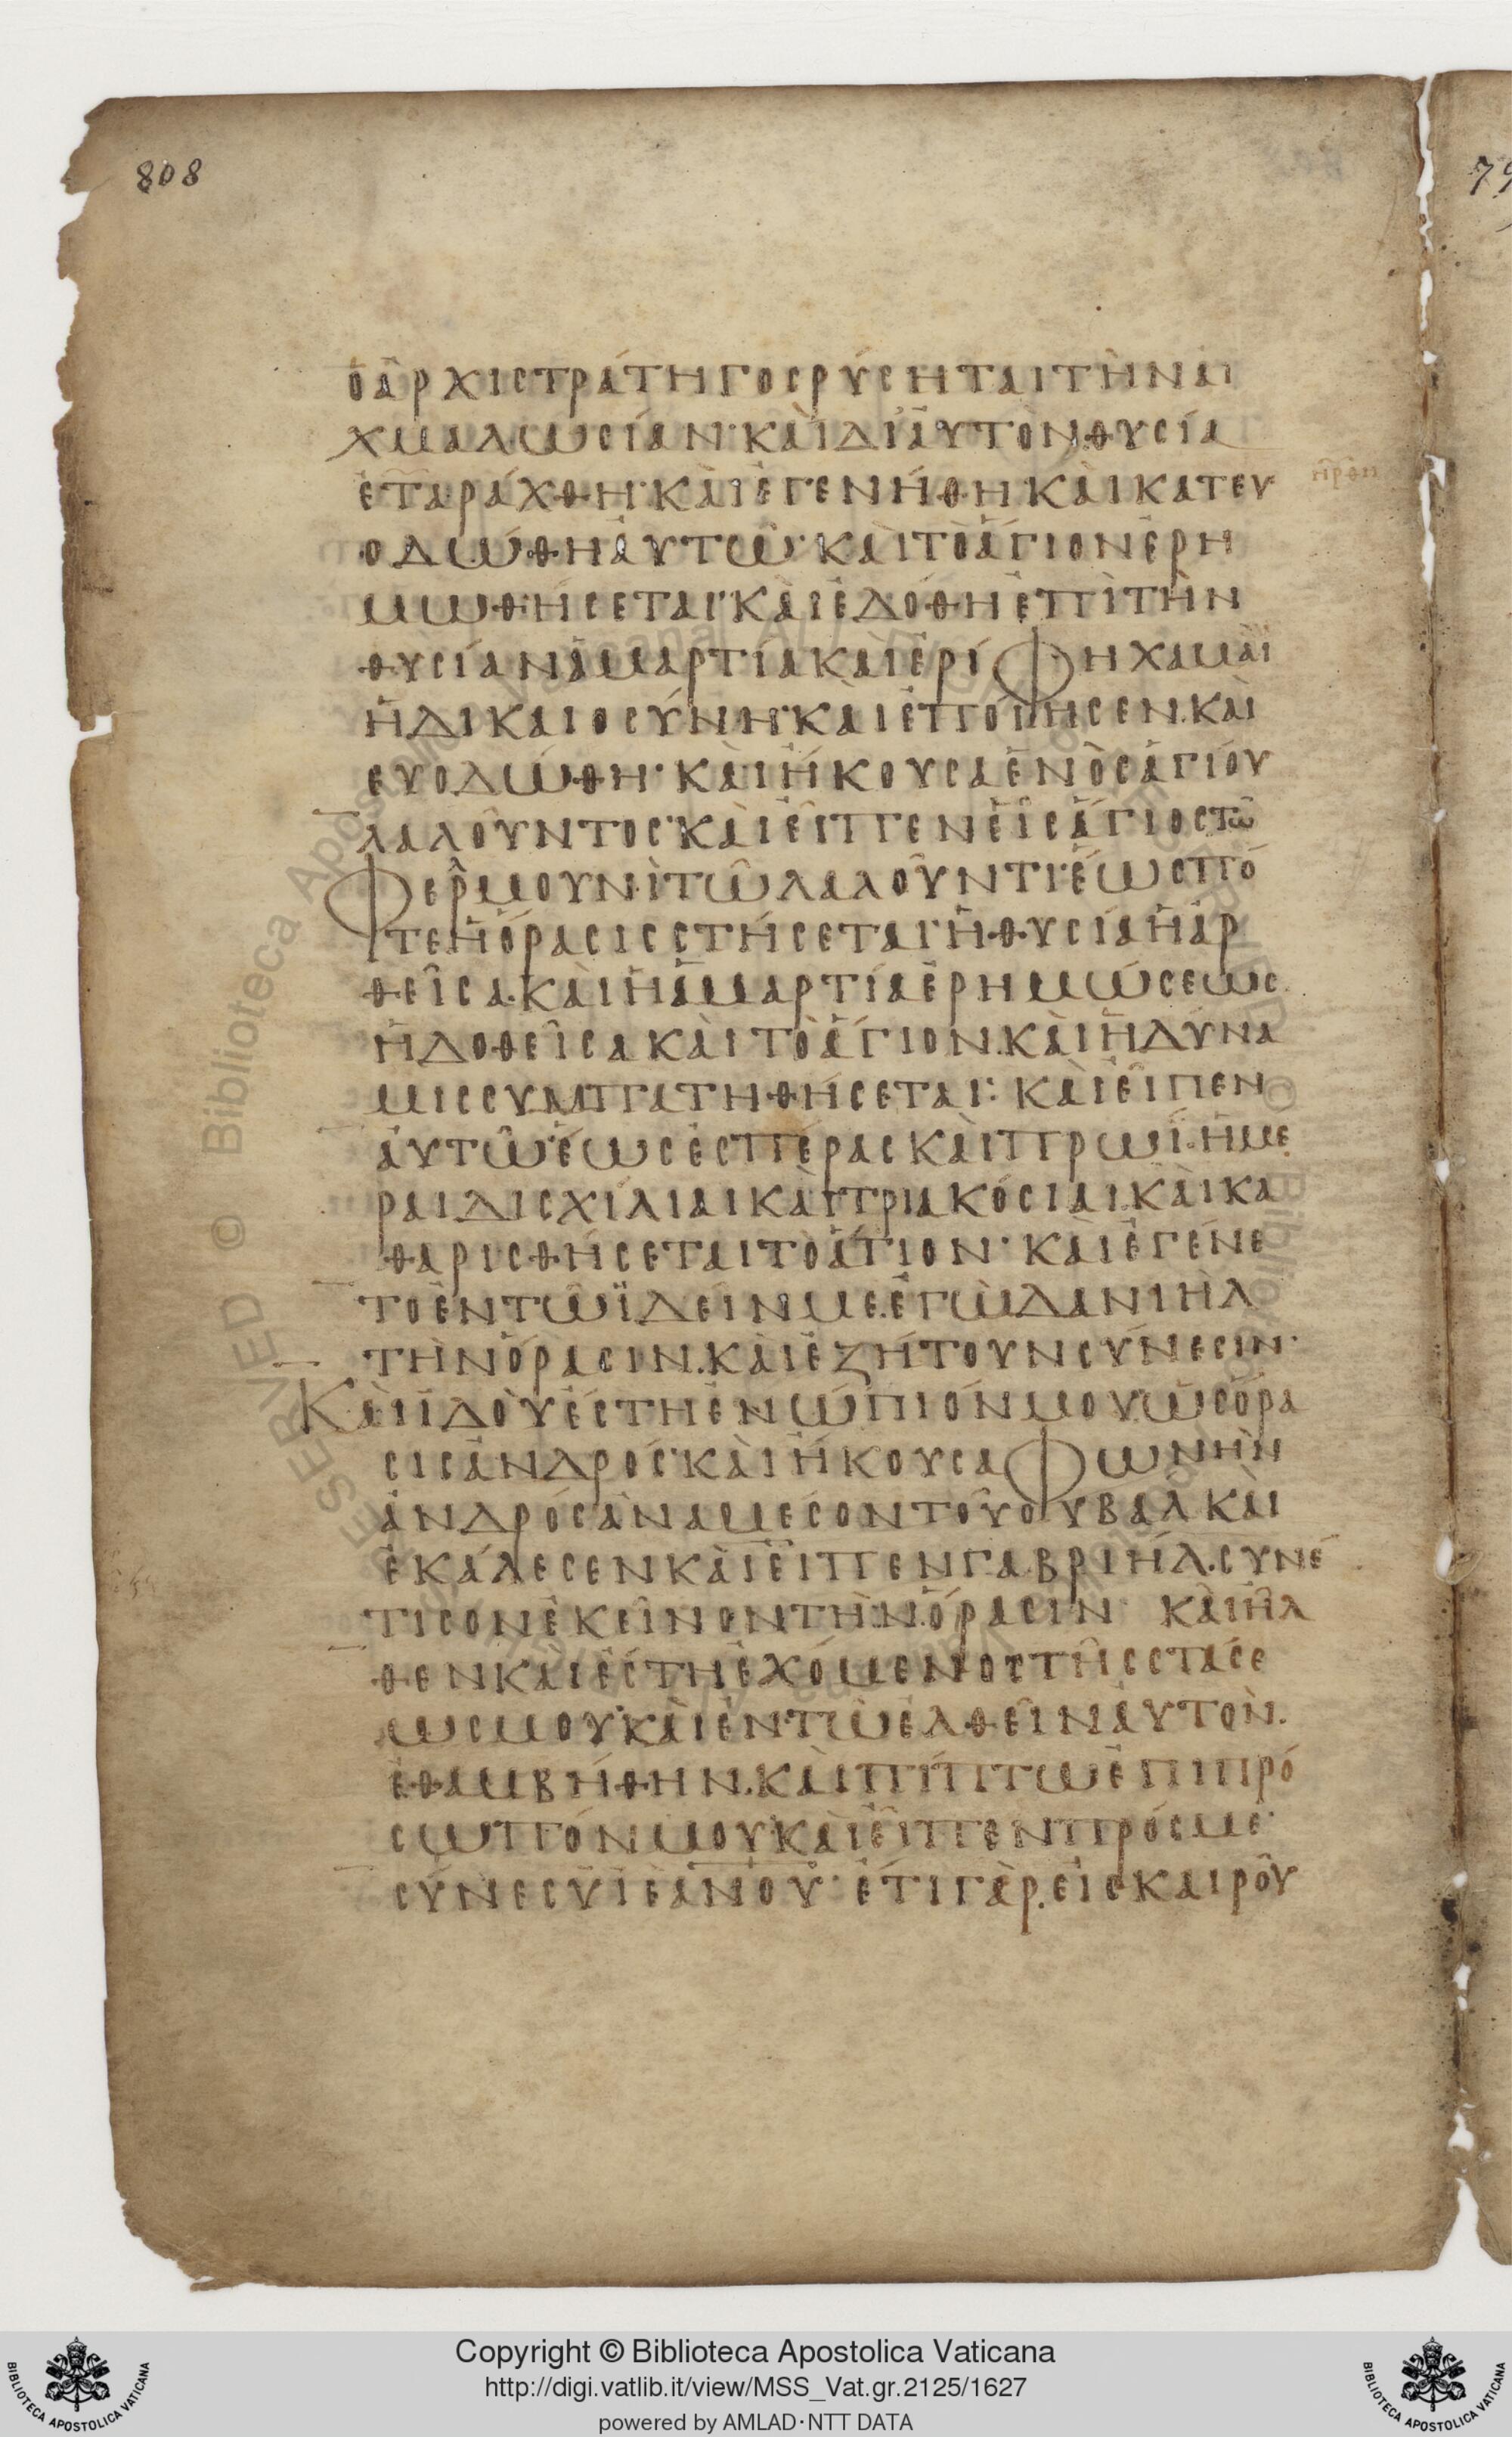 808
79
ὁ ἀρχιστράτηγος ῥύσηται τὴν αἰ
χμαλωσίαν· καὶ δι' αὐτὸν θυσία
ἐταράχθη· καὶ ἐγενήθη καὶ κατευ
ἤρθη
οδώθη αὐτῶ· καὶ τὸ ἅγιον ἐρη
μωθήσεται· καὶ ἐδόθη ἐπὶ τὴν
θυσίαν ἁμαρτία καὶ ἐρίφη χαμαὶ
ἡ δικαιοσύνη· καὶ ἐποίησεν. καὶ
ευοδώθη· καὶ ἤκουσα ἑνὸς ἁγίου
λαλοῦντος· καὶ εἶπεν εἷς ἅγιος τῶ
Φερμουνὶ τῶ λαλοῦντι· ἕως πό
τε ἡ ὅρασις στήσεται· ἡ θυσία ἡ ἀρ
θεῖσα. καὶ ἡ ἁμαρτία ἐρημώσεως
ἡ δοθεῖσα καὶ τὸ ἅγιον. καὶ ἡ δύνα
μις συμπατηθήσεται: καὶ εἶπεν
αὐτῶ· ἕως ἑσπέρας καὶ πρωΐ· ἡμέ
ραι δισχίλιαι καὶ τριακόσιαι. καὶ κα
θαρισθήσεται τὸ ἅγιον· καὶ ἐγένε
το ἐν τῶ ἰδεῖν με. ἐγὼ Δανιὴλ
τὴν ὅρασιν. καὶ ἐζήτουν σύνεσιν·
Καὶ ἰδοὺ ἔστη ἐνώπιόν μου ὡς ὅρα
σις ἀνδρός· καὶ ἤκουσα φωνὴν
ἀνδρός ἀναμέσον τοῦ ουβαλ καὶ
ἐκάλεσεν καὶ εἶπεν γαβριήλ. συνέ
τισον ἐκεῖνον τὴν ὅρασιν καὶ ἦλ
θεν καὶ ἔστη ἐχόμενος τῆς στάσε
ως μου· καὶ ἐν τῶ ἐλθεῖν αὐτὸν.
ἐθαμβήθην. καὶ πίπτω ἐπὶ πρό
σωπόν μου καὶ εἶπεν πρός με·
σύνες υἱὲ ἀνου· ἔτι γὰρ. εἰς καιροῦ
Copyright © Biblioteca Apostolica Vaticana
http://digi.vatlib.it/view/MSS_Vat.gr.2125/1627
powered by AMLAD·NTT DATA
BIBLIOTECA APOSTOLICA VATICANA
BIBLIOTECA APOSTOLICA VATICANA